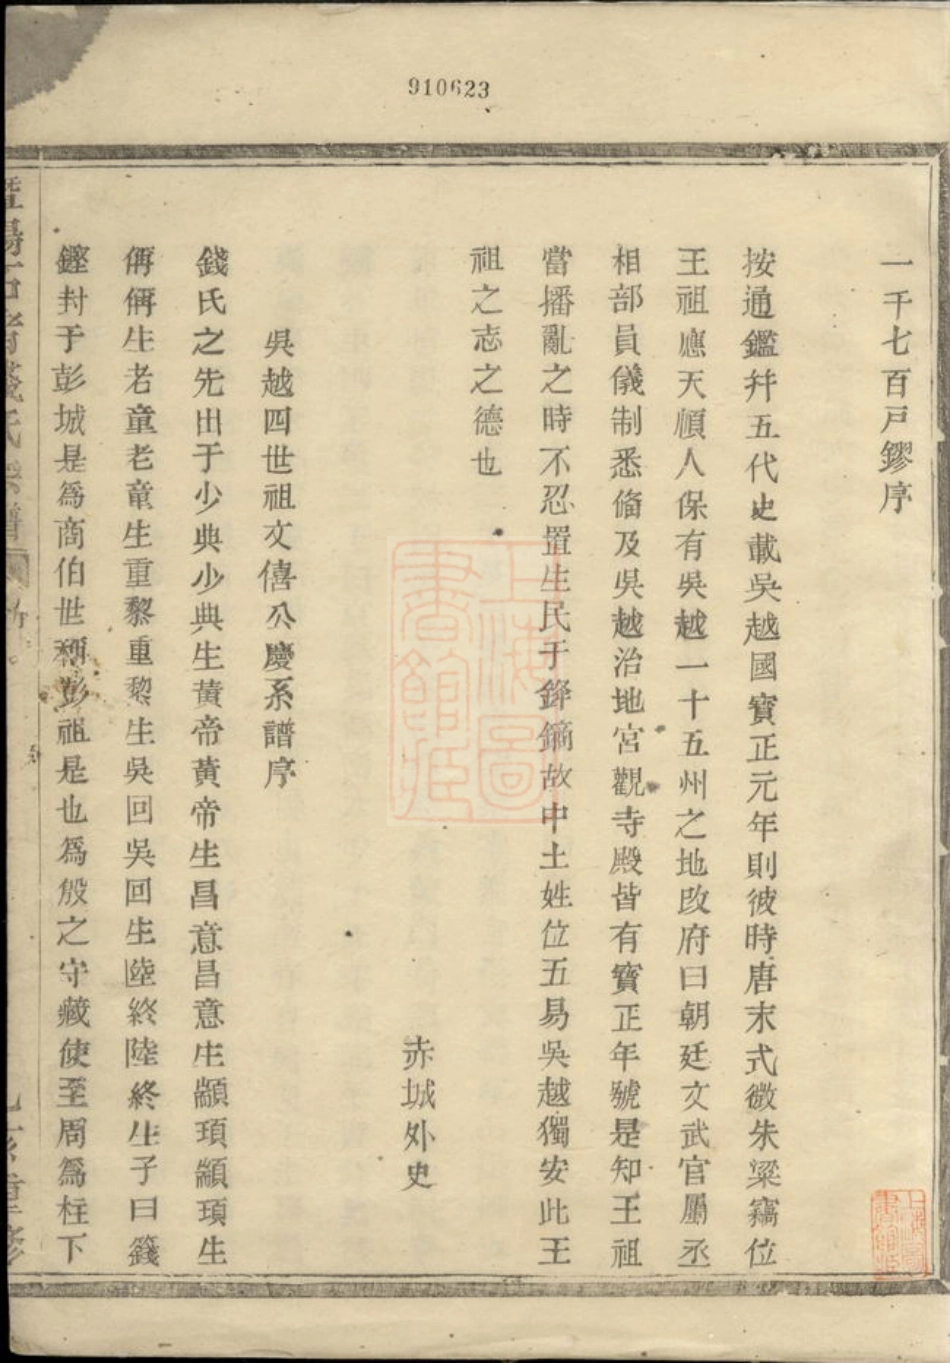 910623
一千七百戸鏐序
按通鑑幷五代史載吳越國寶正元年則彼時唐末式微朱梁竊位
王祖應天順人保有吳越一十五州之地改府曰朝廷文武官屬丞
相部員儀制悉偹及吳越治地宮觀寺殿皆有寳正年號是知王祖
當播亂之時不忍置生民于鋒鏑故中土姓位五易吳越獨安此王
祖之志之德也
赤城外史
吳越四世祖文僖公慶系譜序
錢氏之先出于少典少典生黃帝黃帝生昌意昌意生顓頊顓頊生
偁偁生老童老童生重黎重黎生吳回吳回生陸終陸終生子曰籛
鏗封于彭城是爲商伯世稱彭祖是也爲殷之守藏使至周爲柱下
氏宗譜
重修
上海圖書館藏
上海圖書館藏